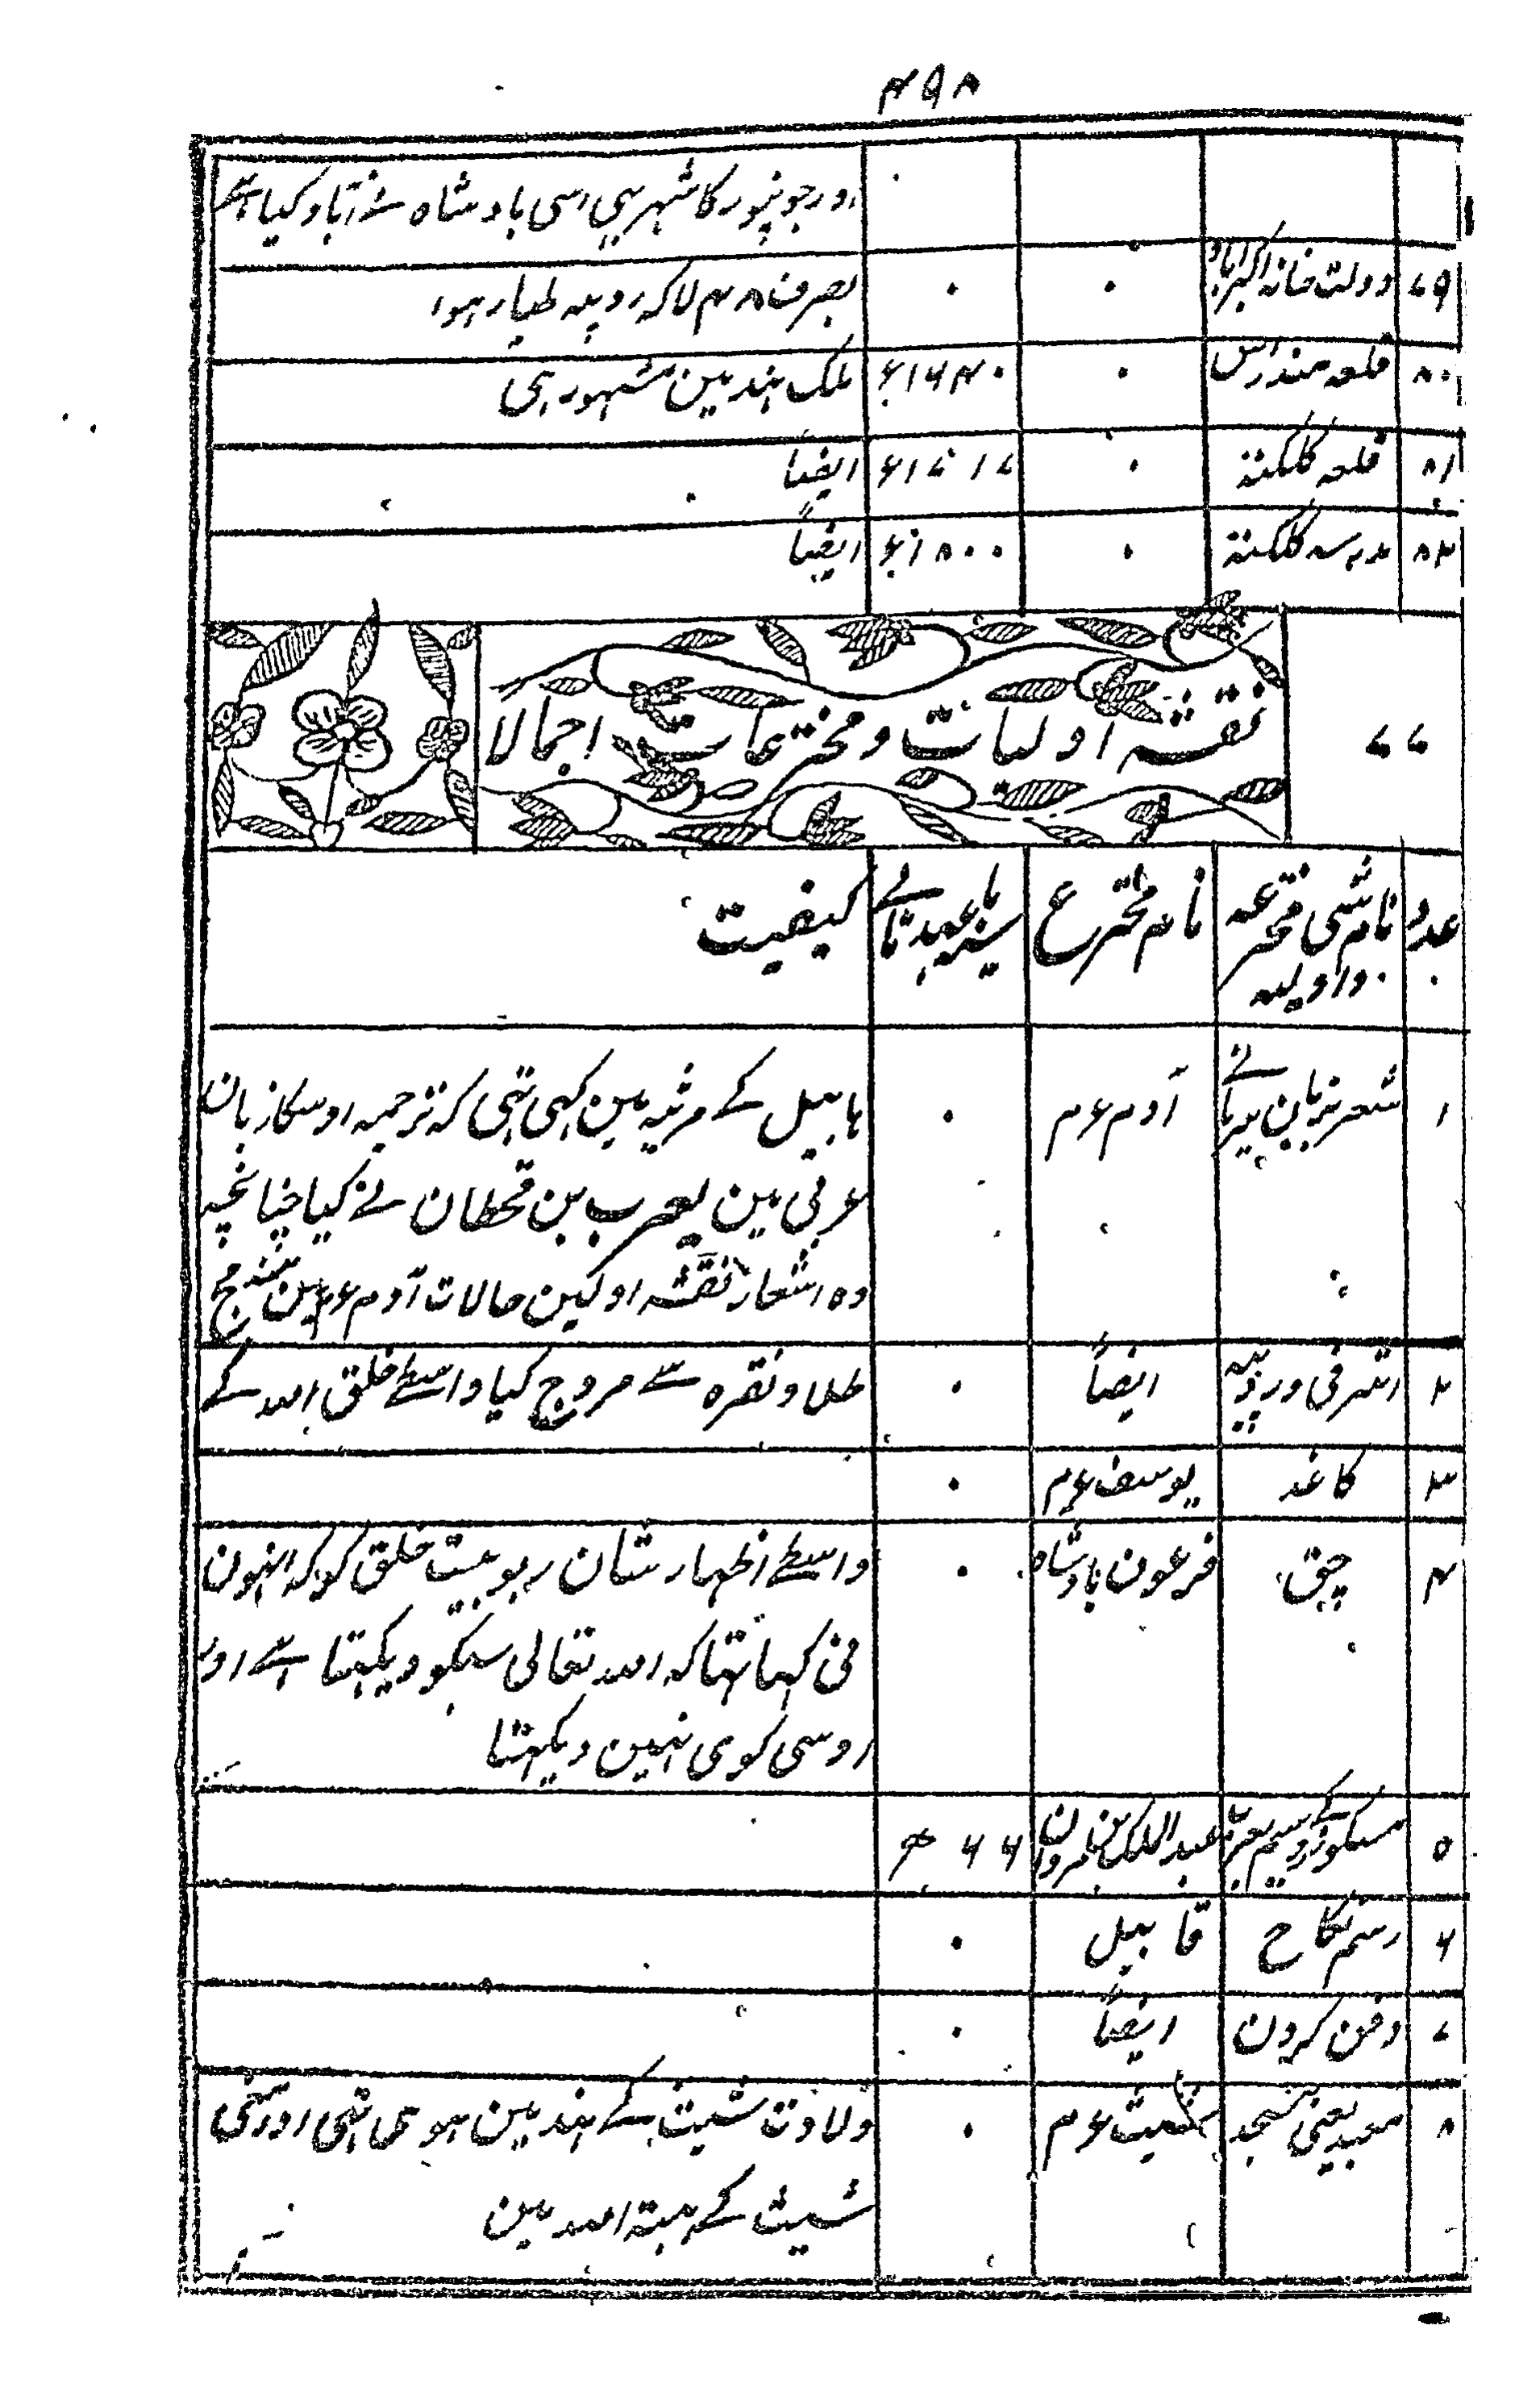 ۴۹۸
اور جونپور کا شہر بہی اسی بادشاہ نے آباد کیا ہے
۷۹ دولت خانہ اکبرآباد ۰ ۰ بصرف ۴۸ لاکہ روپیہ طیار ہوا
۸۰ قلعہ مندراس ۰ ۱۶۴۰ء ملک ہند مین مشہور ہی
۸۱ قلعہ کلکتہ ۰ ۱۷۱۷ء ایضاً
۸۲ مدرسہ کلکتہ ۰ ۱۸۰۰ء ایضاً
۷۷ نقشہ اولیات و مخترعات اجمالا
عدد نام شی مخترعہ واولیہ نام مخترع سنہ یا عہد بنائے کیفیت
۱ شعر بزبان سریانے آدم ءم ۰ ہابیل کے مرثیہ مین کہی تہی کہ ترجمہ اوسکا زبان
عربی مین یعرب بن قحطان نے کیا چنانچہ
وہ اشعار نقشہ اولین حالات آدم ء مین مندرج
۲ اشرفی و روپیہ ایضاً ۰ طلا و نقرہ سے مروج کیا واسطے خلق اللہ کے
۳ کاغذ یوسف ءم ۰
۴ چق فرعون بادشاہ ۰ واسطے اظہار شان ربوبیت خلق کو کہ انہون
نی کہا تہا کہ اللہ تعالی سبکو دیکہتا ہے اور
اوسی کوی نہین دیکہتا
۵ مسکوک زر و سیم عبدالملک بن مروان ۶۶ ھ
۶ رسم نکاح قابیل ۰
۷ دفن کردن ایضاً ۰
۸ معبد یعنی مسجد شیث ءم ۰ ولادت شیث کے ہند مین ہوی تہی اور
شیث کے ہبتہ اللہ ہین